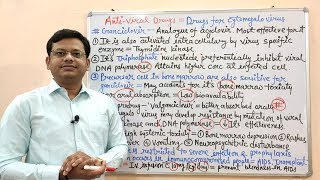 Anti-Viral Drugs = Drugs for Cytomegalo virus
# Ganciclovir - Analogue of acyclovir. Most effective for it
① It is also activated intracellularly by virus specific
enzyme = Thymidine kinase
② It's Triphosphate nucleotide preferentially inhibit viral
DNA polymerase. Attains higher conc at infected cell.
③ Precursor cell in bone marrow are also sensitive for
ganciclovir = May accounts for it's bone marrow toxicity
oral absorption = Low bioavailability
prodrug - valganciclovir = better absorbed orally
virus may develop resistance by mutation in viral
kinase and DNA polymerase it's efficiency
high systemic toxicity - ① Bone marrow depression ② Rashes
③ vomiting ④ Neuropsychiatric disturbance
restricted to severe infection & prophylaxis
occurs in immunocompromised people = AIDS, transplant
IV infusion prevent blindness in AIDS